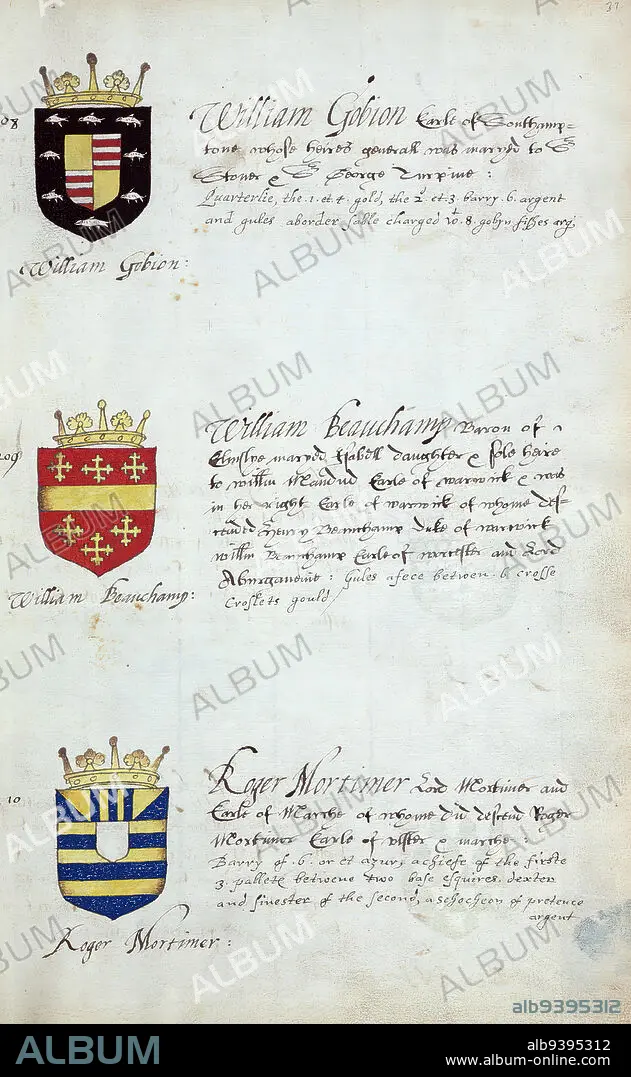 37
08
William Gobion Earle of Southamp=
tone whose heires generall was maryd to Sr
Stoner & Sr George Turpine :
Quarterlie, the .1. et 4. gold, the 2. et .3. barry .6. argent
and gules aborder sable charged wt .8. gobyn fisses arg
William Gobion :
209
William Beauchamp Baron of
Elmslye maryed Isabell daughter & sole heire
to willm Mauduid Earle of warwick & was
in her right Earle of warwick of whome des=
cended Henry Beauchamp Duke of warwick
willm Beauchamp Earle of worcester and Lord
Aburgaveine : Gules a fece betwen .6. crosse
Croslets gould
William Beauchamp :
10
Roger Mortimer Lord Mortimer and
Earle of Marche of whome did descend Roger
Mortimer Earle of vlster & marche :
Barry of .6. or et azur, a chiefe of the firste
3. pallete betwene two base esquires, dexter
and sinester of the second, a schocheon of pretence
argent
Roger Mortimer :
alb9395312
ALBUM
alb9395312
www.album-online.com